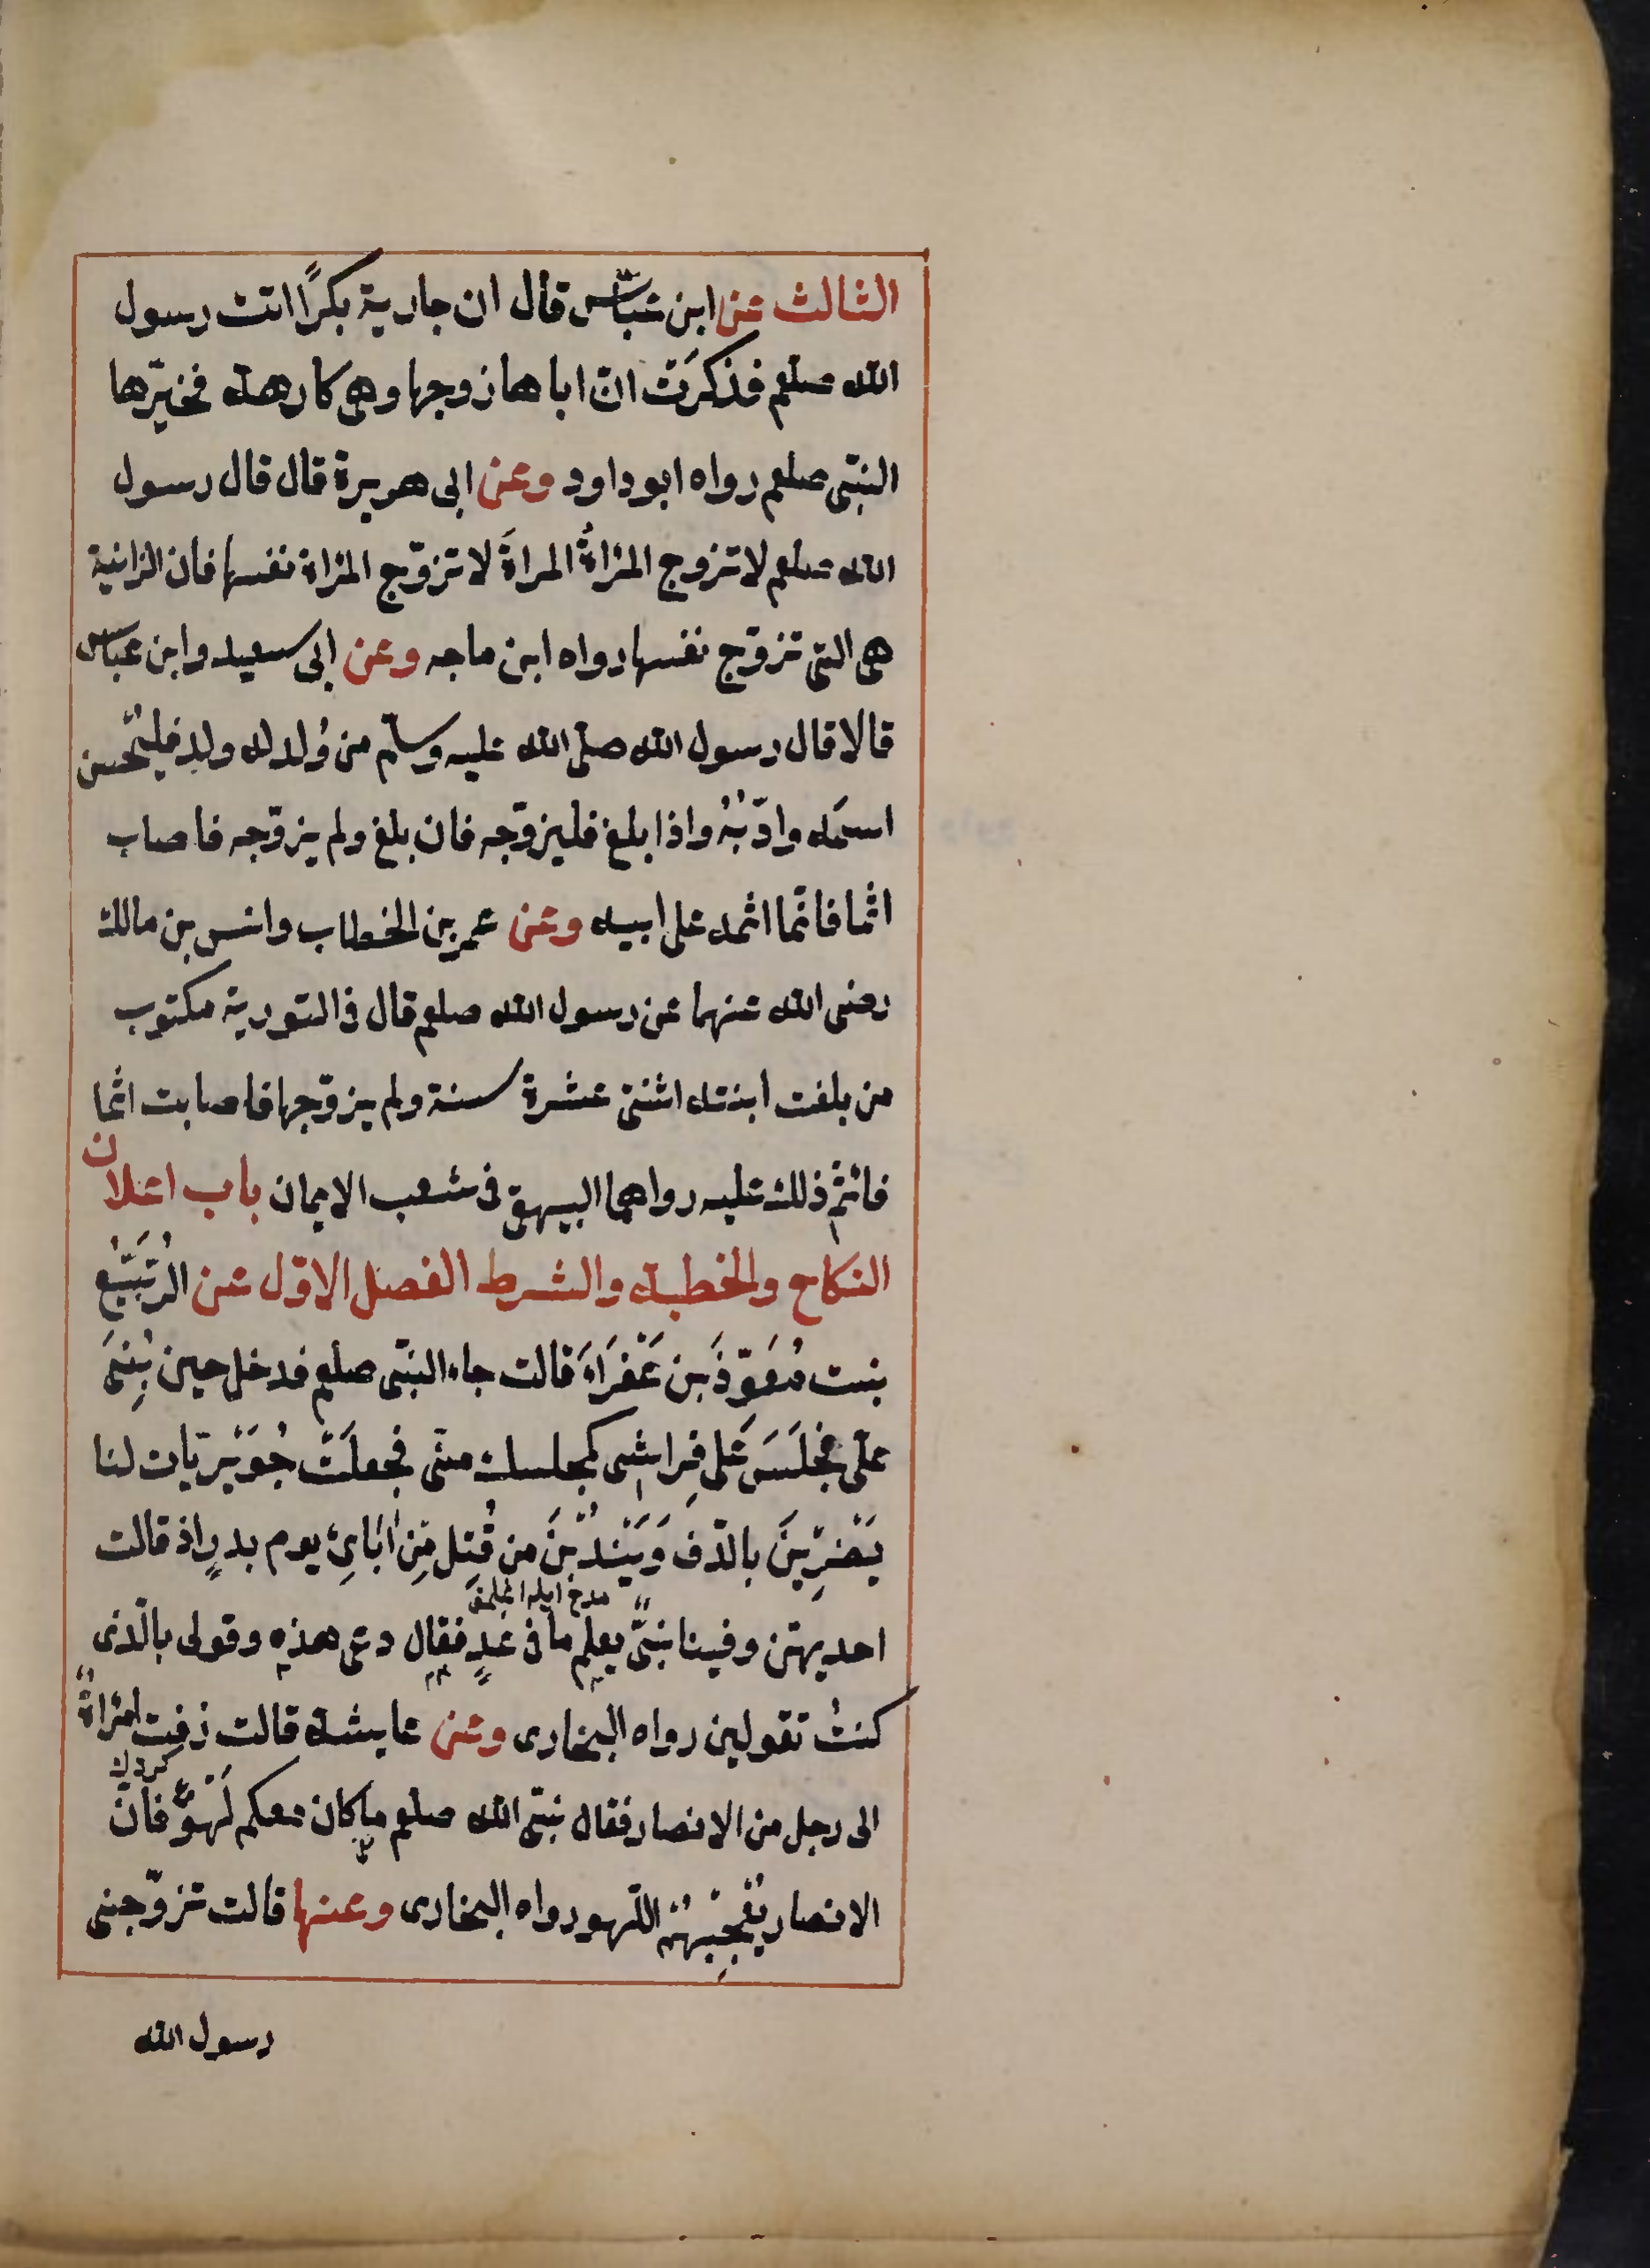 الثالث عن ابن عباس قال ان جارية بكرًا اتت رسول
الله صلعم فذكرَت انّ اباها زوجها وهى كارهة فخيّرها
النبّى صلعم رواه ابو داود وعن ابى هريرة قال قال رسول
الله صلعم لا تزوج المراةُ المراةَ لا تزوّج المراة نفسها فان الزانية
هى التى تزوّج نفسها رواه ابن ماجه وعن ابى سعيد وابن عباس
قالا قال رسول الله صلّى الله عليه وسلّم من وُلد له ولد فليُحسن
اسمَه وادّبْهُ واذا بلغ فليزوّجه فان بلغ ولم يزوّجه فاصاب
اثما فانّما اثمه على ابيه وعن عمر بن الخطاب وانس بن مالك
رضى الله عنهما عن رسول الله صلعم قال فى التورية مكتوب
من بلغت ابنته اثنتى عشرة سنة ولم يزوّجها فاصابت اثما
فاثم ذلك عليه رواهما البيهقى فى شعب الايمان باب اعلان
النكاح والخطبة والشرط الفصل الاوّل عن الرُبَيّع
بنت مُعَوّذ بن عَفْرَاءَ قالت جاء النبّى صلعم فدخل حين بُنِىَ
علّى فجَلَسَ عَلى فِراشى كمجلسك منّى فجعلَتْ جُوَيْريّات لنا
يَضْرِبْنَ بالدّف وَيَنْدُبْنَ من قُتِل مِن اٰبَائِ يوم بدرٍ اذ قالت
احديهّن وفينا نبىٌّ يعلم ما فى غدٍ فقال دعى هذهِ وقولى بالّذى
كنتُ تقولين رواه البخارى وعن عايشة قالت زفت امراةٌ
الى رجل من الانصار فقال نبّى الله صلعم ما كان معكم لَهْوٌ فانّ
الانصار يُعْجِبُهُمْ اللّهو رواه البخارى وعنها قالت تزوّجنى
رسول الله